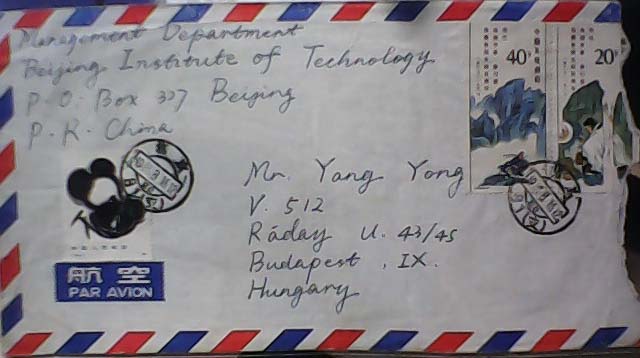 Management Department
Beijing Institute of Technology
P.O. Box 327 Beijing
P.R. China
40分
20分
Mr. Yang Yong
V. 512
Ráday U. 43/45
Budapest, IX.
Hungary
航空
PAR AVION